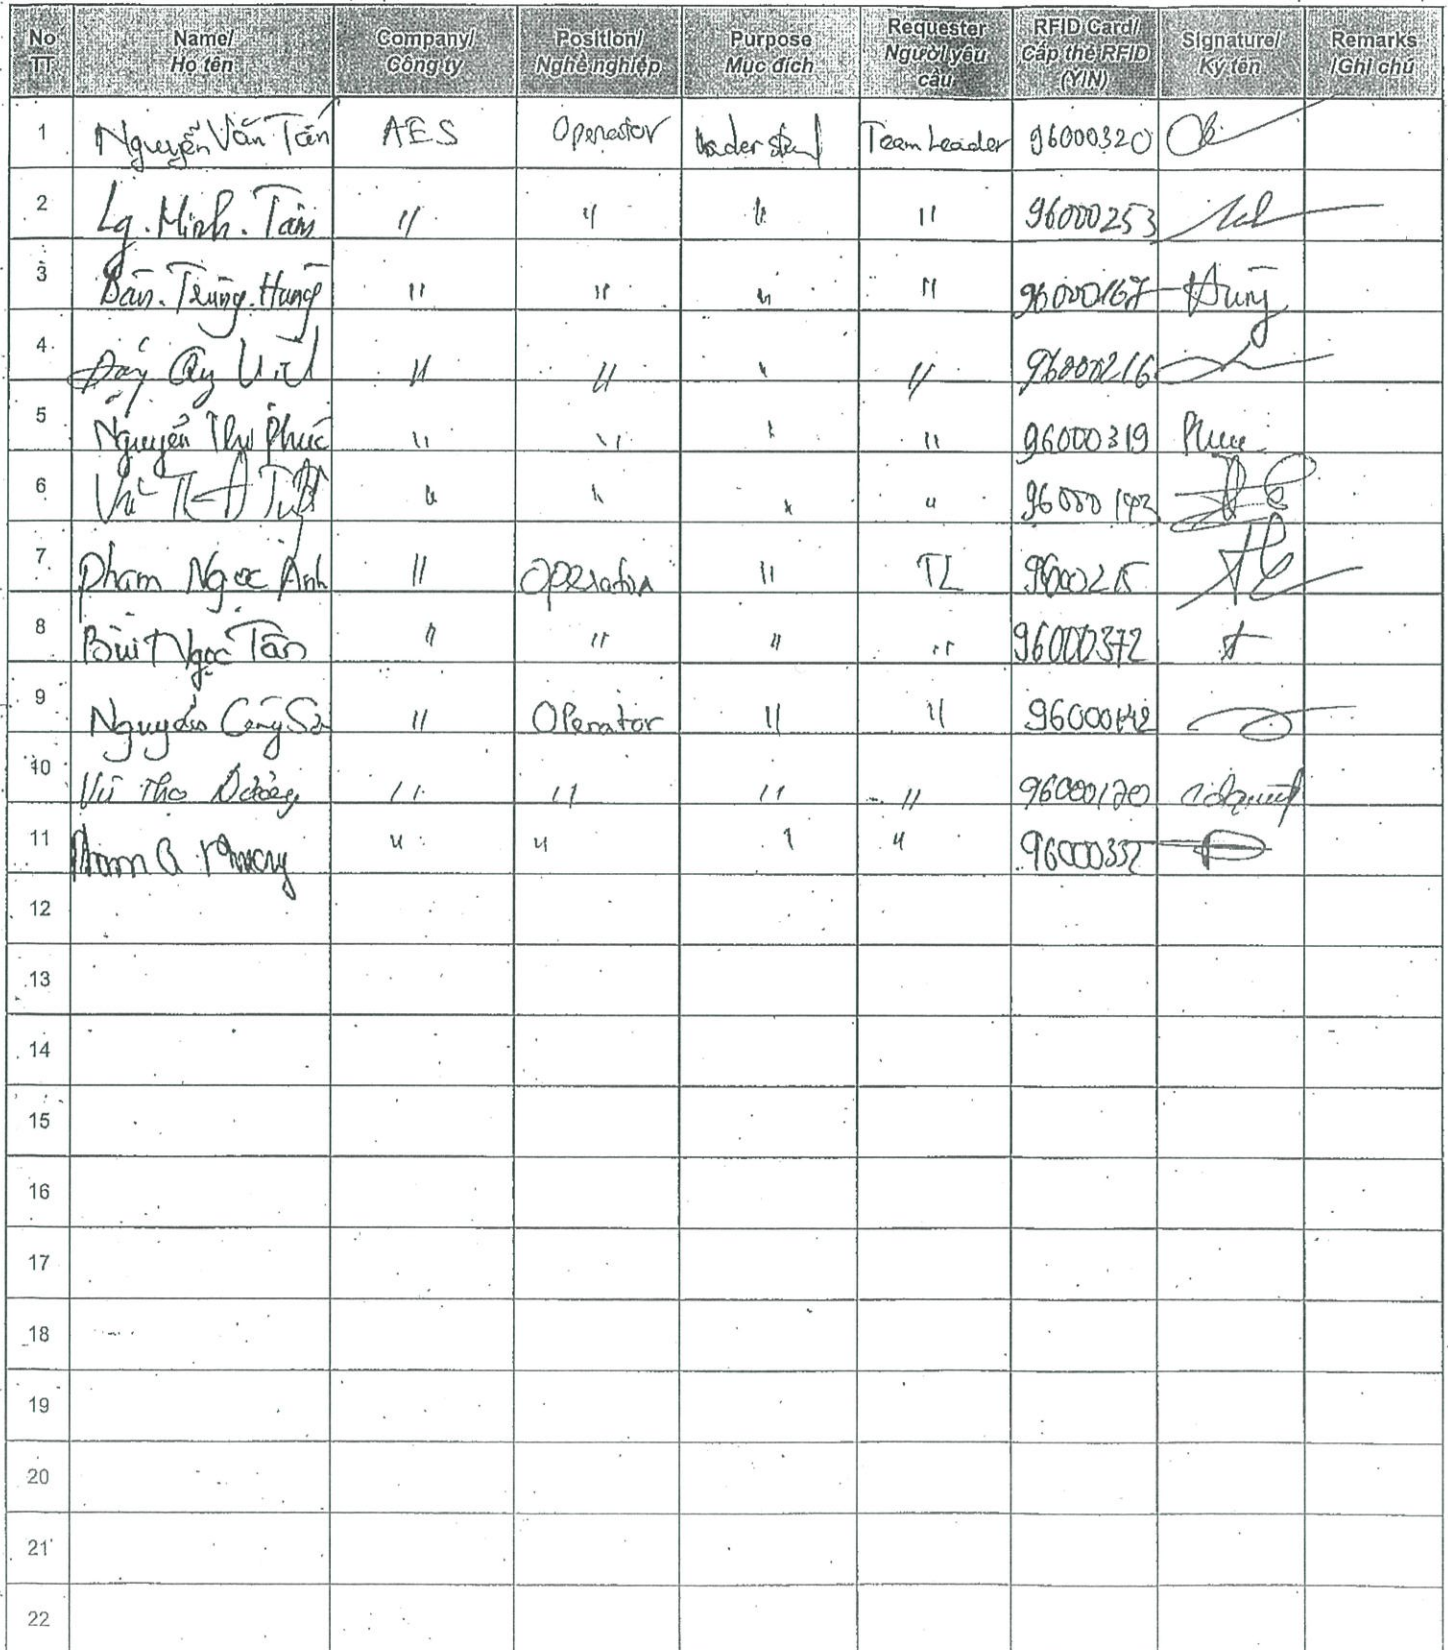 No TT Name/ Họ tên Company/ Công ty Position/ Nghề nghiệp Purpose Mục đích Requester Người yêu cầu RFID Card/ Cấp thẻ RFID (Y/N) Signature/ Ký tên Remarks /Ghi chú
1 Nguyễn Văn Tân AES Operator Understand Team Leader 96000320
2 Lg. Minh. Tâm 〃 〃 〃 〃 96000253
3 Trung. Hưng 〃 〃 〃 〃 96000167 Hưng
4 〃 〃 〃 〃 96000216
5 Nguyễn Thọ Phúc 〃 〃 〃 〃 96000319 Phúc
6 〃 〃 〃 〃
7 Phạm Ngọc Ánh 〃 Operator 〃 TL
8 Bùi Ngọc Tân 〃 〃 〃 〃 96000372
9 Nguyễn Công 〃 Operator 〃 〃 96000142
10 Vũ Thọ 〃 〃 〃 〃 96000120
11 〃 〃 〃 〃 96000332
12
13
14
15
16
17
18
19
20
21
22